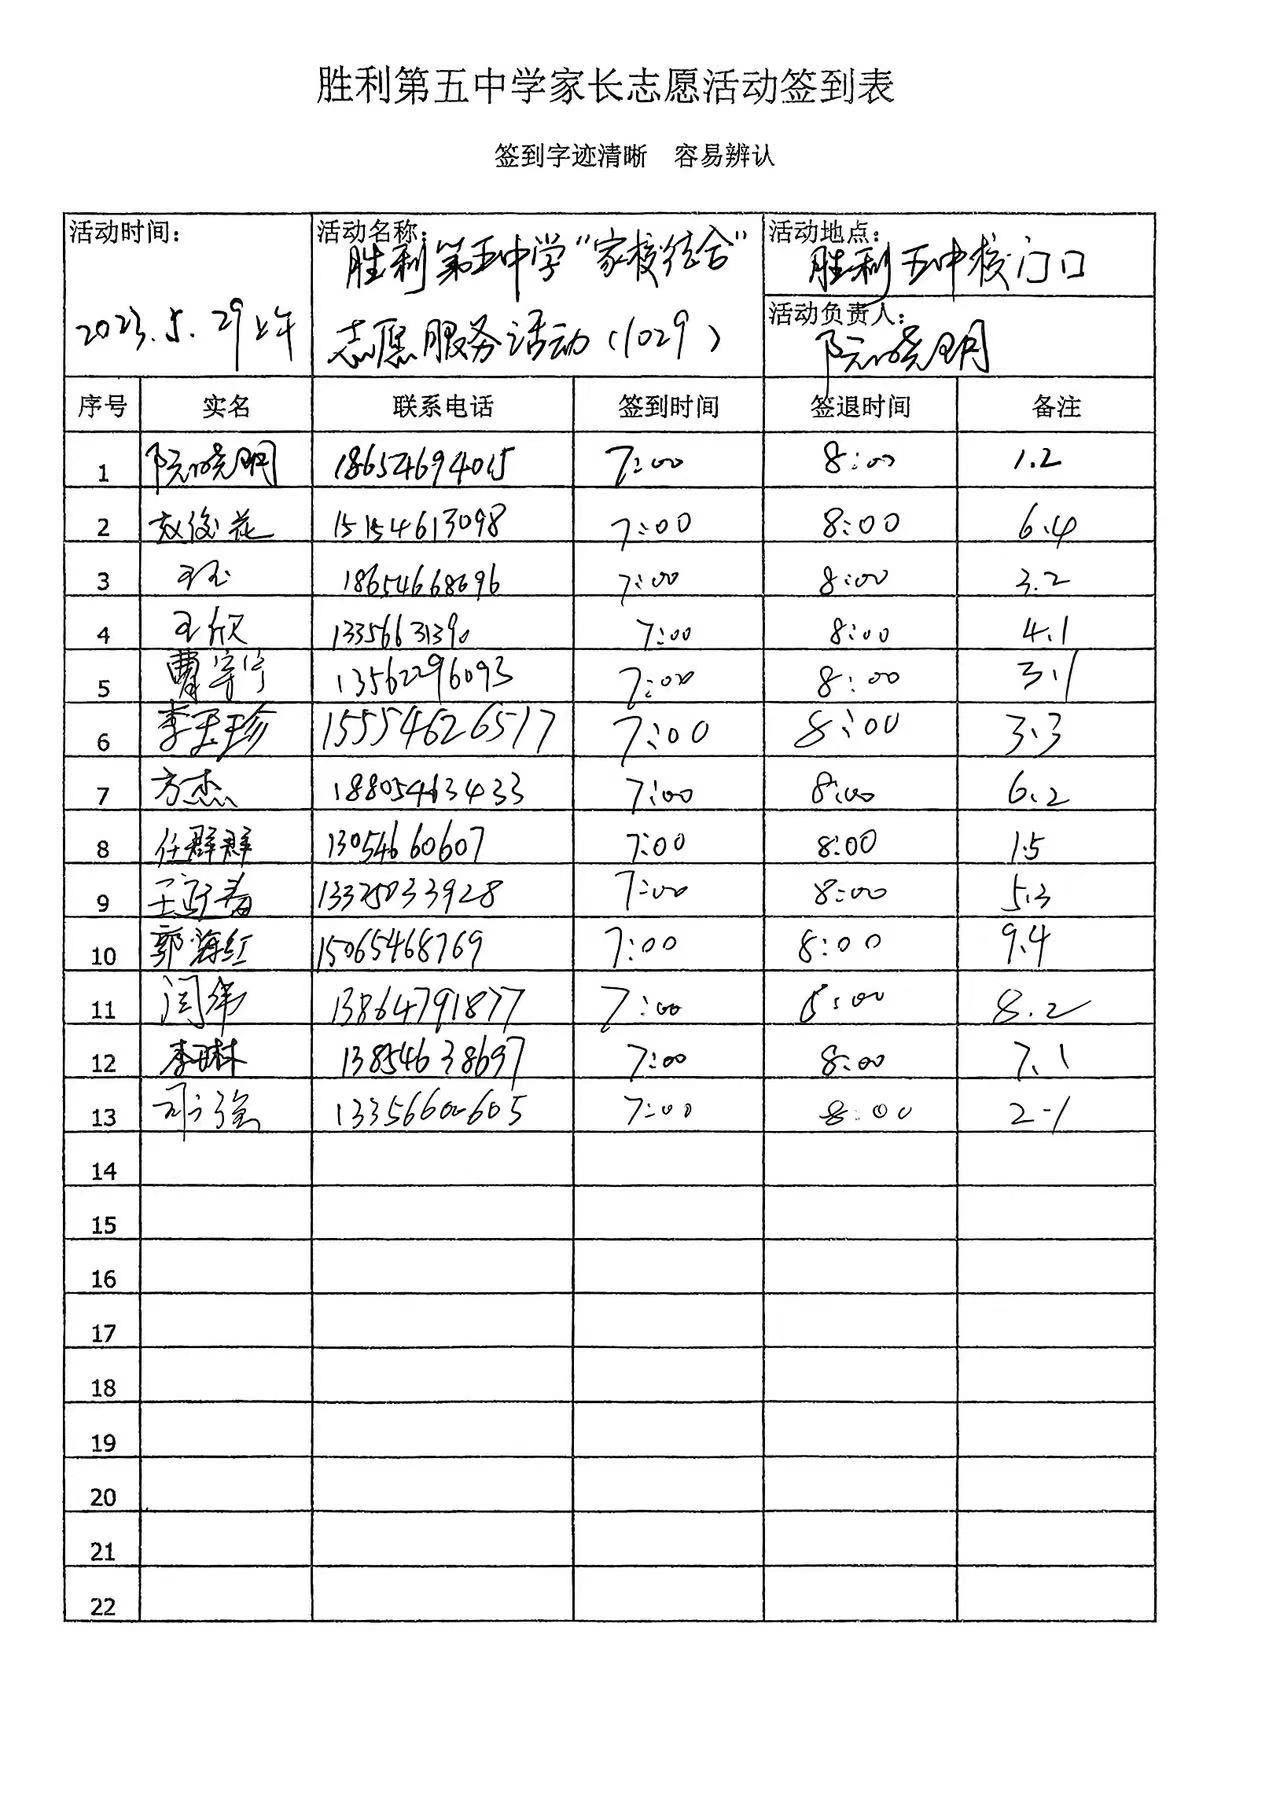 胜利第五中学家长志愿活动签到表
签到字迹清晰 容易辨认
活动时间: 2023.5.29上午
活动名称: 胜利第五中学“家校结合”
志愿服务活动(1029)
活动地点: 胜利五中校门口
活动负责人: 阮晓明
序号 实名 联系电话 签到时间 签退时间 备注
1 阮晓明 18654694015 7:00 8:00 1.2
2 赵俊花 15154613098 7:00 8:00 6.4
3 王玉 18654668696 7:00 8:00 3.2
4 王欣 13356631390 7:00 8:00 4.1
5 曹宁宁 13562296093 7:00 8:00 3.1
6 李玉珍 15554626517 7:00 8:00 3.3
7 方杰 18805463433 7:00 8:00 6.2
8 任群群 13054660607 7:00 8:00 1.5
9 13325033928 7:00 8:00 5.3
10 郭海红 15065468769 7:00 8:00 9.4
11 闫伟 13864791877 7:00 8:00 8.2
12 李琳 13854638697 7:00 8:00 7.1
13 7:00 8:00 2-1
14
15
16
17
18
19
20
21
22